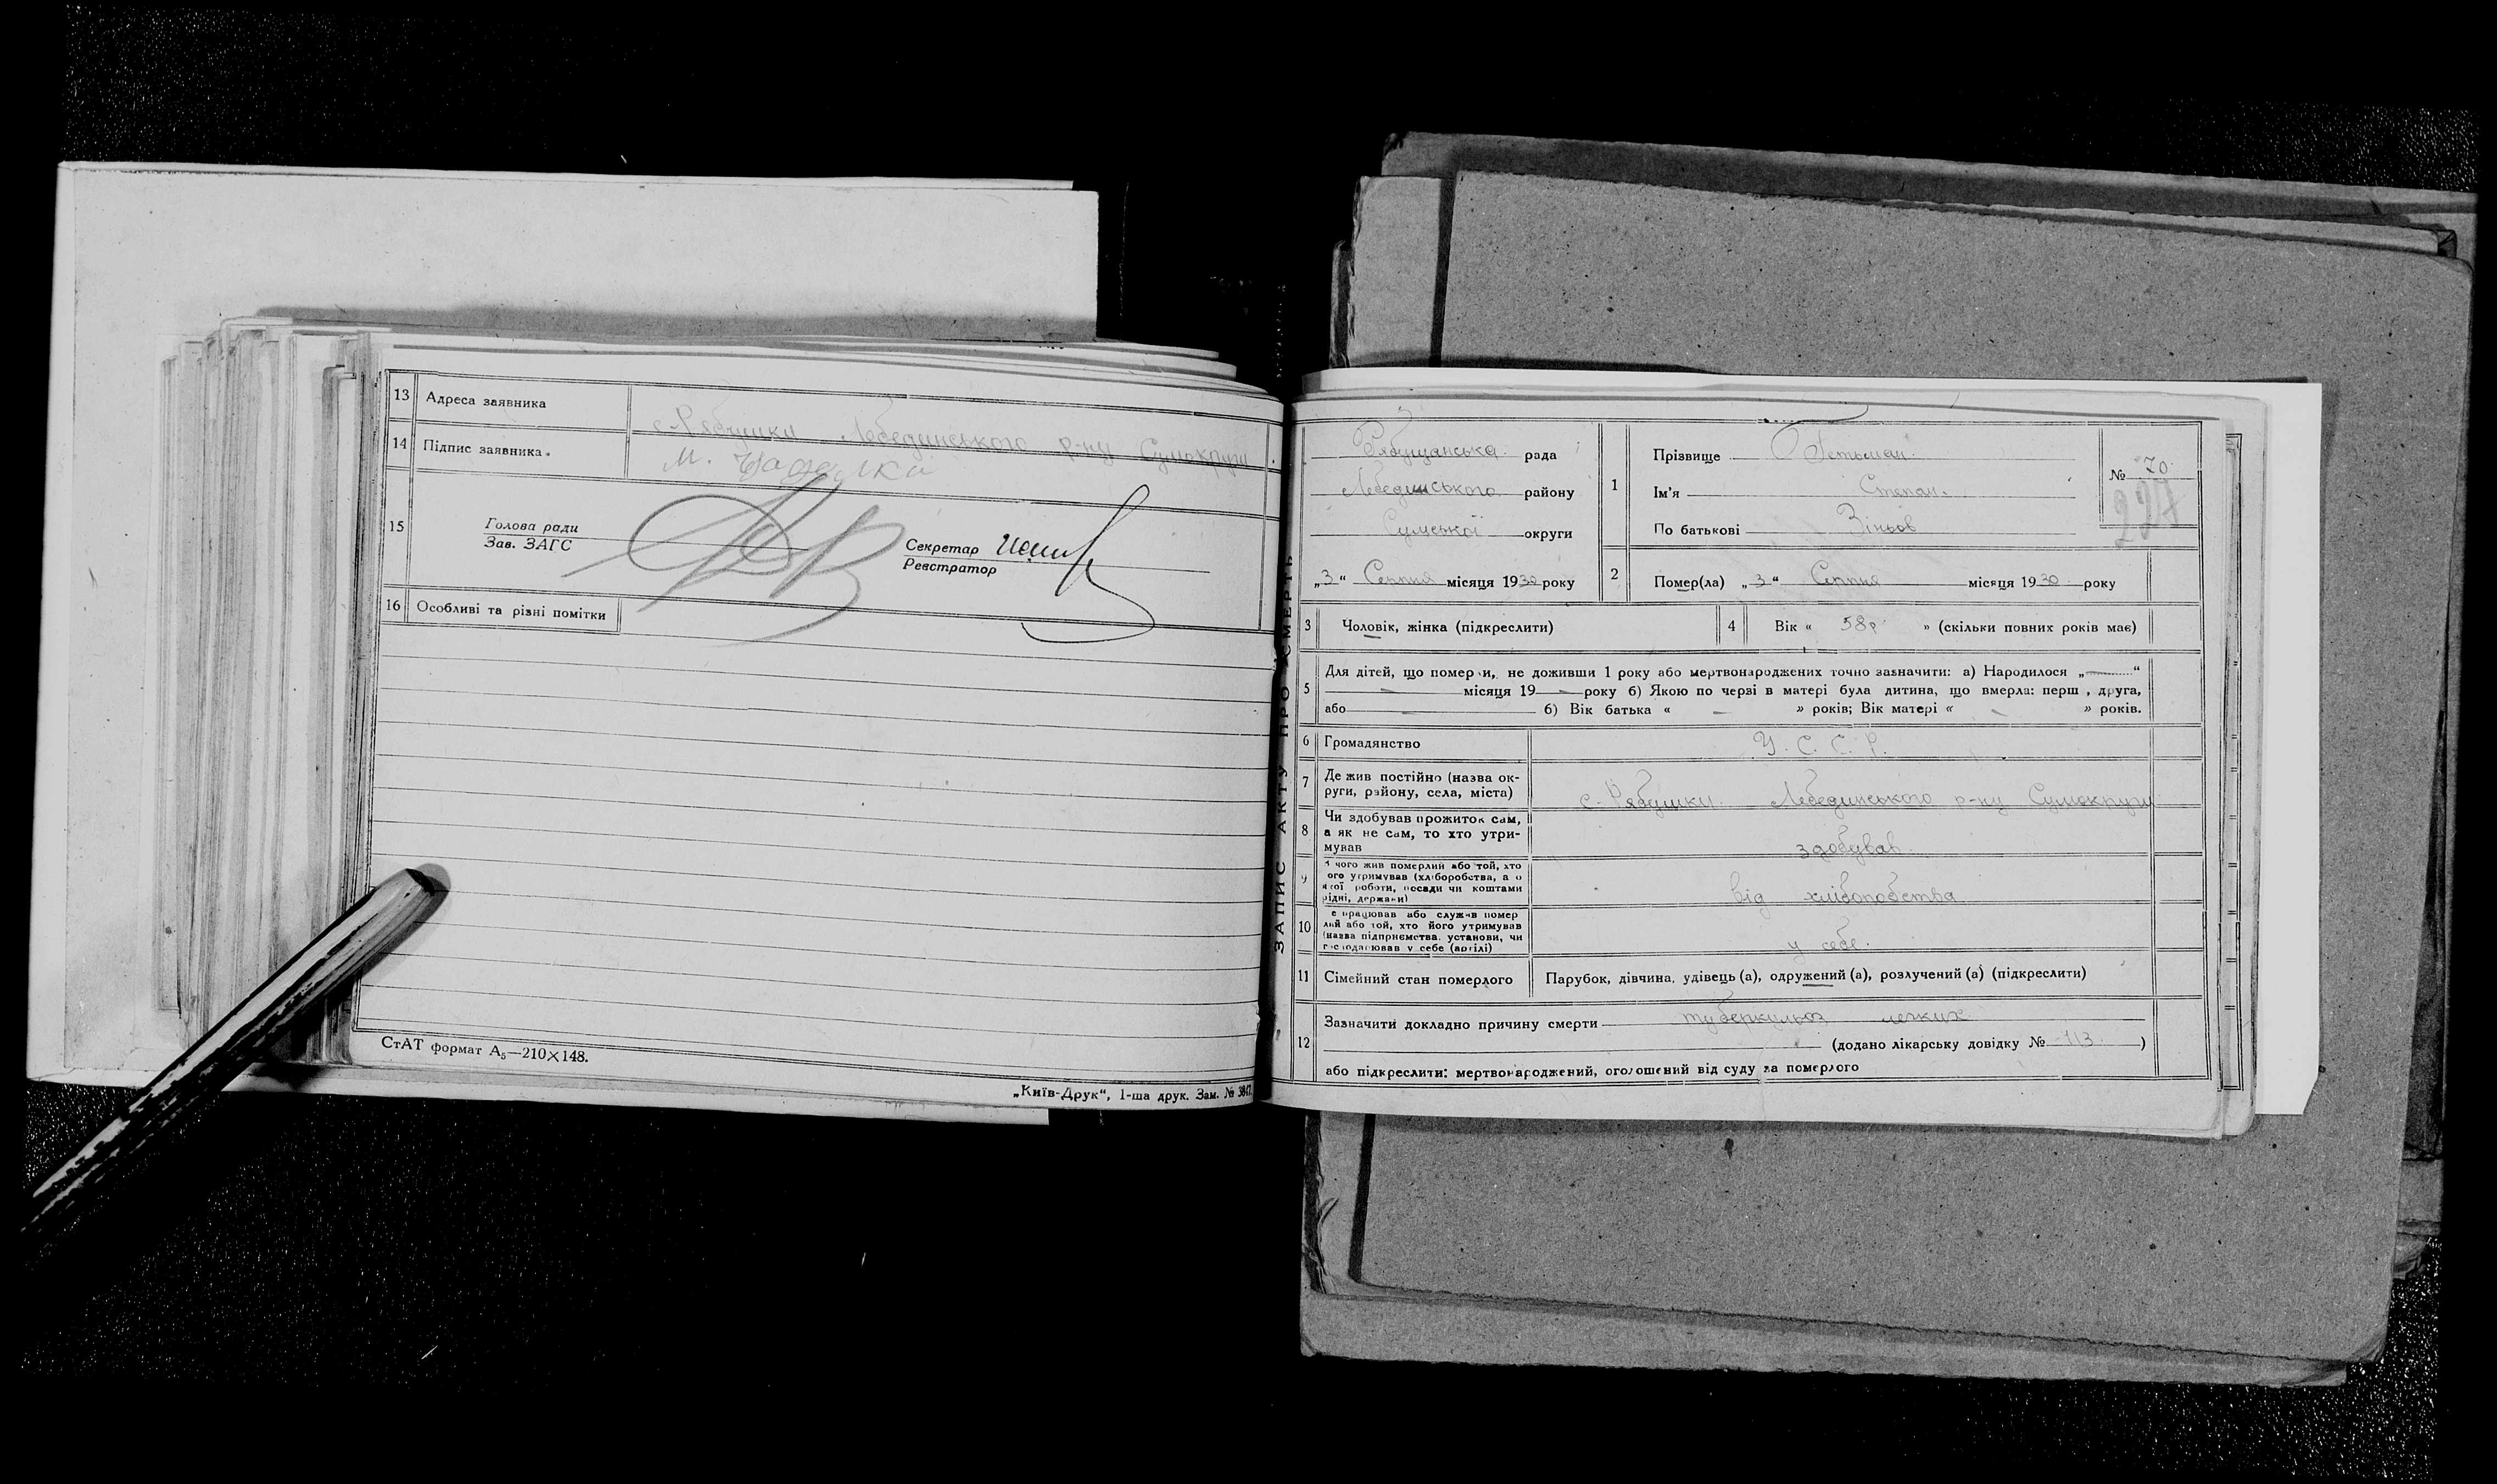 13 Адреса заявника
с. Рябушки Лебединського р-ну Сумокруги
14 Підпис заявника
М.
15 Голова ради
Зав. ЗАГС
Секретар
Реєстратор
16 Особливі та різні помітки
СтАТ формат А5—210×148.
„Київ-Друк“, 1-ша друк. Зам. №
ЗАПИС АКТУ ПРО СМЕРТЬ
Рябущанська рада
Лебединського району
Сумської округи
„3“ Серпня місяця 1930 року
1 Прізвище Гетьман
Ім'я Степан
По батькові Зіньов
№ 70
227
2 Помер(ла) „3“ Серпня місяця 1930 року
3 Чоловік, жінка (підкреслити)
4 Вік « 58р » (скільки повних років має)
5 Для дітей, що померли, не доживши 1 року або мертвонароджених точно зазначити: а) Народилося „—“
— місяця 19— року б) Якою по черзі в матері була дитина, що вмерла: перш , друга,
або — б) Вік батька « — » років; Вік матері « — » років.
6 Громадянство У. С. С. Р.
7 Де жив постійно (назва ок-
руги, району, села, міста)
с. Рябушки Лебединського р-ну Сумокруги
8 Чи здобував прожиток сам,
а як не сам, то хто утри-
мував
здобував
9 З чого жив померлий або той, хто
його утримував (хліборобства, а о
якої роботи, посади чи коштами
рідні, держави)
від хліборобства
10 Де працював або служив помер
лий або той, хто його утримував
(назва підприємства, установи, чи
господарював у себе (артілі)
у себе.
11 Сімейний стан померлого
Парубок, дівчина, удівець (а), одружений (а), розлучений (а) (підкреслити)
12 Зазначити докладно причину смерти туберкульоз легких
(додано лікарську довідку № 113 )
або підкреслити: мертвонароджений, оголошений від суду за померлого